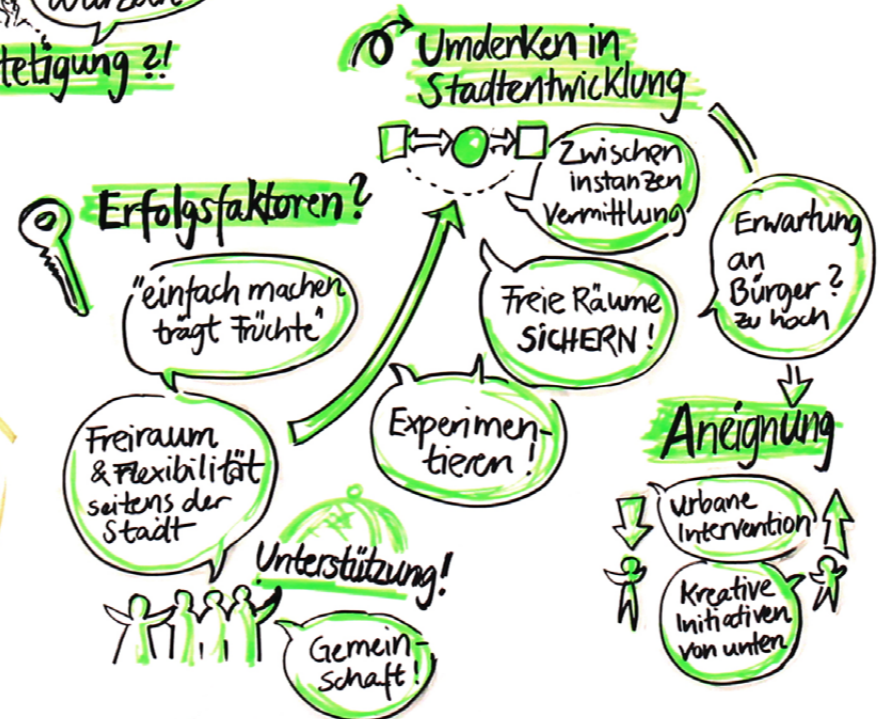 Wurzeln
tetigung ?!
Umdenken in
Stadtentwicklung
Zwischen
instanzen
Vermittlung
Erwartung
an
Bürger?
zu hoch
Erfolgsfaktoren?
"einfach machen
trägt Früchte"
Freie Räume
SICHERN!
Freiraum
& Flexibilität
seitens der
Stadt
Experimen-
tieren!
Aneignung
urbane
Intervention
Kreative
Initiativen
von unten
Unterstützung!
Gemein-
schaft!